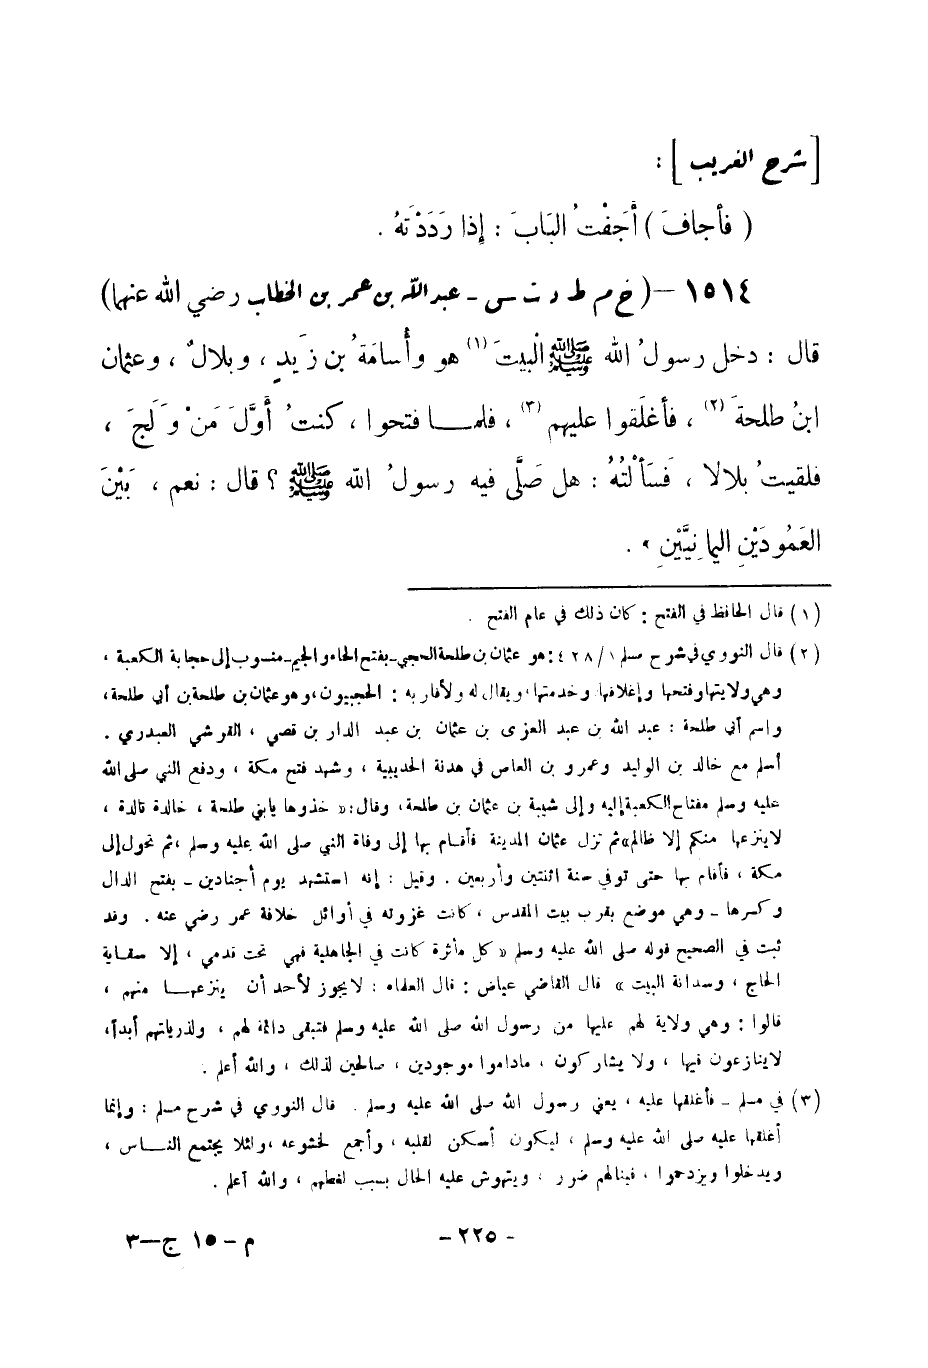 [ شرح الغريب ] :
( فأجافَ ) أَجَفْتُ البَابَ : إِذا رَدَدْتَهُ .
١٥١٤ – ( خ م ط د ت س – عبد الله بن عمر بن الخطاب رضي الله عنهما )
قال : دخل رسولُ الله ﷺ الْبيتَ (١) هو وأُسامَةُ بن زَيدٍ ، وبلالٌ ، وعثمان
ابنُ طلحةَ (٢) ، فأغلَقوا عليهم (٣) ، فلمـــا فتحوا ، كنتُ أَوَّلَ مَنْ وَلَجَ ،
فلقيتُ بلالا ، فَسَأَلْتُهُ : هل صَلَّى فيه رسولُ الله ﷺ ؟ قال : نعم ، بَيْنَ
العَمُودَيْنِ اليمانِيَّيْنِ » .
(١) قال الحافظ في الفتح : كان ذلك في عام الفتح .
(٢) قال النووي في شرح مسلم ٤٢٨/١ : هو عثمان بن طلحة الحجبي – بفتح الحاء والجيم – منسوب إلى حجابة الكعبة ،
وهي ولايتها وفتحها وإغلاقها وخدمتها ، ويقال له ولأقاربه : الحجبيون ، وهو عثمان بن طلحة بن أبي طلحة ،
واسم أبي طلحة : عبد الله بن عبد العزى بن عثمان بن عبد الدار بن قصي ، القرشي العبدري .
أسلم مع خالد بن الوليد وعمرو بن العاص في هدنة الحديبية ، وشهد فتح مكة ، ودفع النبي صلى الله
عليه وسلم مفتاح الكعبة إليه وإلى شيبة بن عثمان بن طلحة ، وقال : « خذوها يابني طلحة ، خالدة تالدة ،
لاينزعها منكم إلا ظالم » ثم نزل عثمان المدينة فأقام بها إلى وفاة النبي صلى الله عليه وسلم ، ثم تحول إلى
مكة ، فأقام بها حتى توفي سنة اثنتين وأربعين . وقيل : إنه استشهد يوم أجنادين – بفتح الدال
وكسرها – وهي موضع بقرب بيت المقدس ، كانت غزوته في أوائل خلافة عمر رضي عنه . وقد
ثبت في الصحيح قوله صلى الله عليه وسلم « كل مأثرة كانت في الجاهلية فهي تحت قدمي ، إلا سقاية
الحاج ، وسدانة البيت » قال القاضي عياض : قال العلماء : لايجوز لأحد أن ينزعهـــا منهم ،
قالوا : وهي ولاية لهم عليها من رسول الله صلى الله عليه وسلم فتبقى دائمة لهم ، ولذرياتهم أبداً ،
لاينازعون فيها ، ولا يشاركون ، ماداموا موجودين ، صالحين لذلك ، والله أعلم .
(٣) في مسلم – فأغلقها عليه ، يعني رسول الله صلى الله عليه وسلم . قال النووي في شرح مسلم : وإنما
أغلقها عليه صلى الله عليه وسلم ، ليكون أسكن لقلبه ، وأجمع لخشوعه ، ولئلا يجتمع النـــاس ،
ويدخلوا ويزدحموا ، فينالهم ضرر ، ويتهوش عليه الحال بسبب لغطهم ، والله أعلم .
– ٢٢٥ –
م – ١٥ ج – ٣